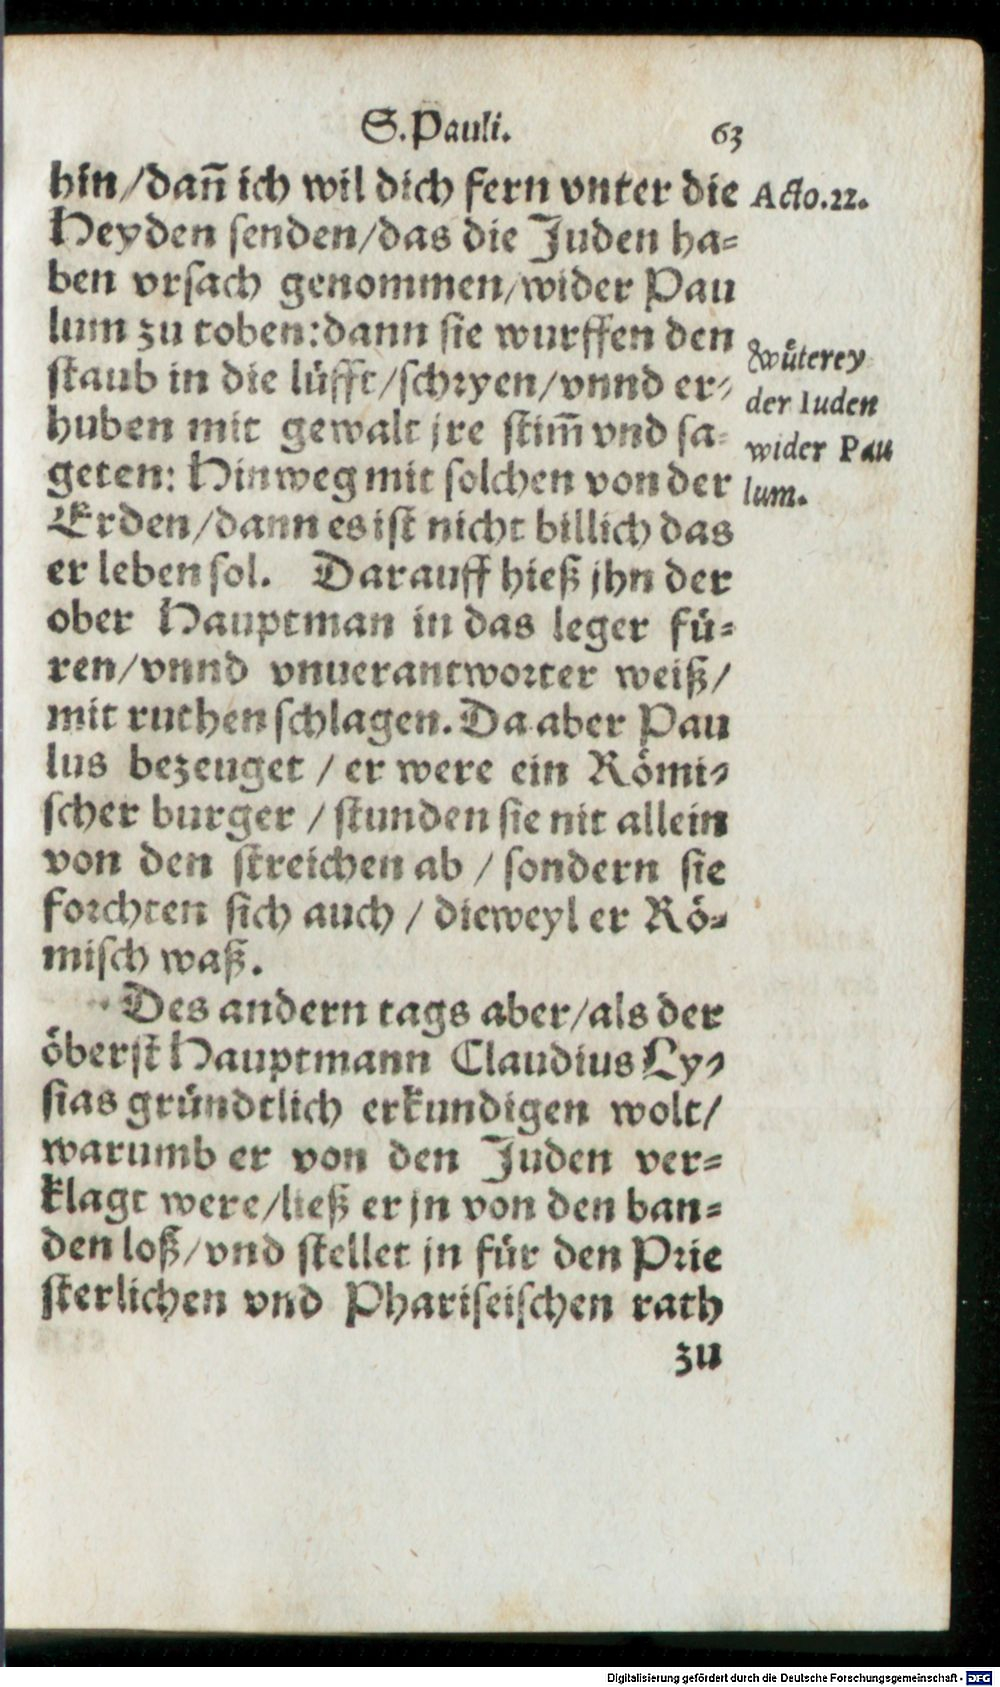 S. Pauli. 63
hin/dañ ich wil dich fern vnter die Acto. 22.
Heyden senden/das die Juden ha=
ben vrsach genommen/wider Pau
lum zu toben: dann sie wurffen den
staub in die lüfft/schryen/vnnd er=
huben mit gewalt jre stim̃ vnd sa=
geten: Hinweg mit solchen von der
Erden/dann es ist nicht billich das
er leben sol. Darauff hieß jhn der
ober Hauptman in das leger fü=
ren/vnnd vnuerantworter weiß/
mit ruthen schlagen. Da aber Pau
lus bezeuget / er were ein Römi=
scher burger / stunden sie nit allein
von den streichen ab / sondern sie
forchten sich auch / dieweyl er Rö=
misch waß.
Des andern tags aber/als der
öberst Hauptmann Claudius Ly=
sias gründtlich erkundigen wolt/
warumb er von den Juden ver=
klagt were/ließ er jn von den ban=
den loß/vnd stellet jn für den Prie
sterlichen vnd Phariseischen rath
zu
wůterey
der Iuden
wider Pau
lum.
Digitalisierung gefördert durch die Deutsche Forschungsgemeinschaft - DFG